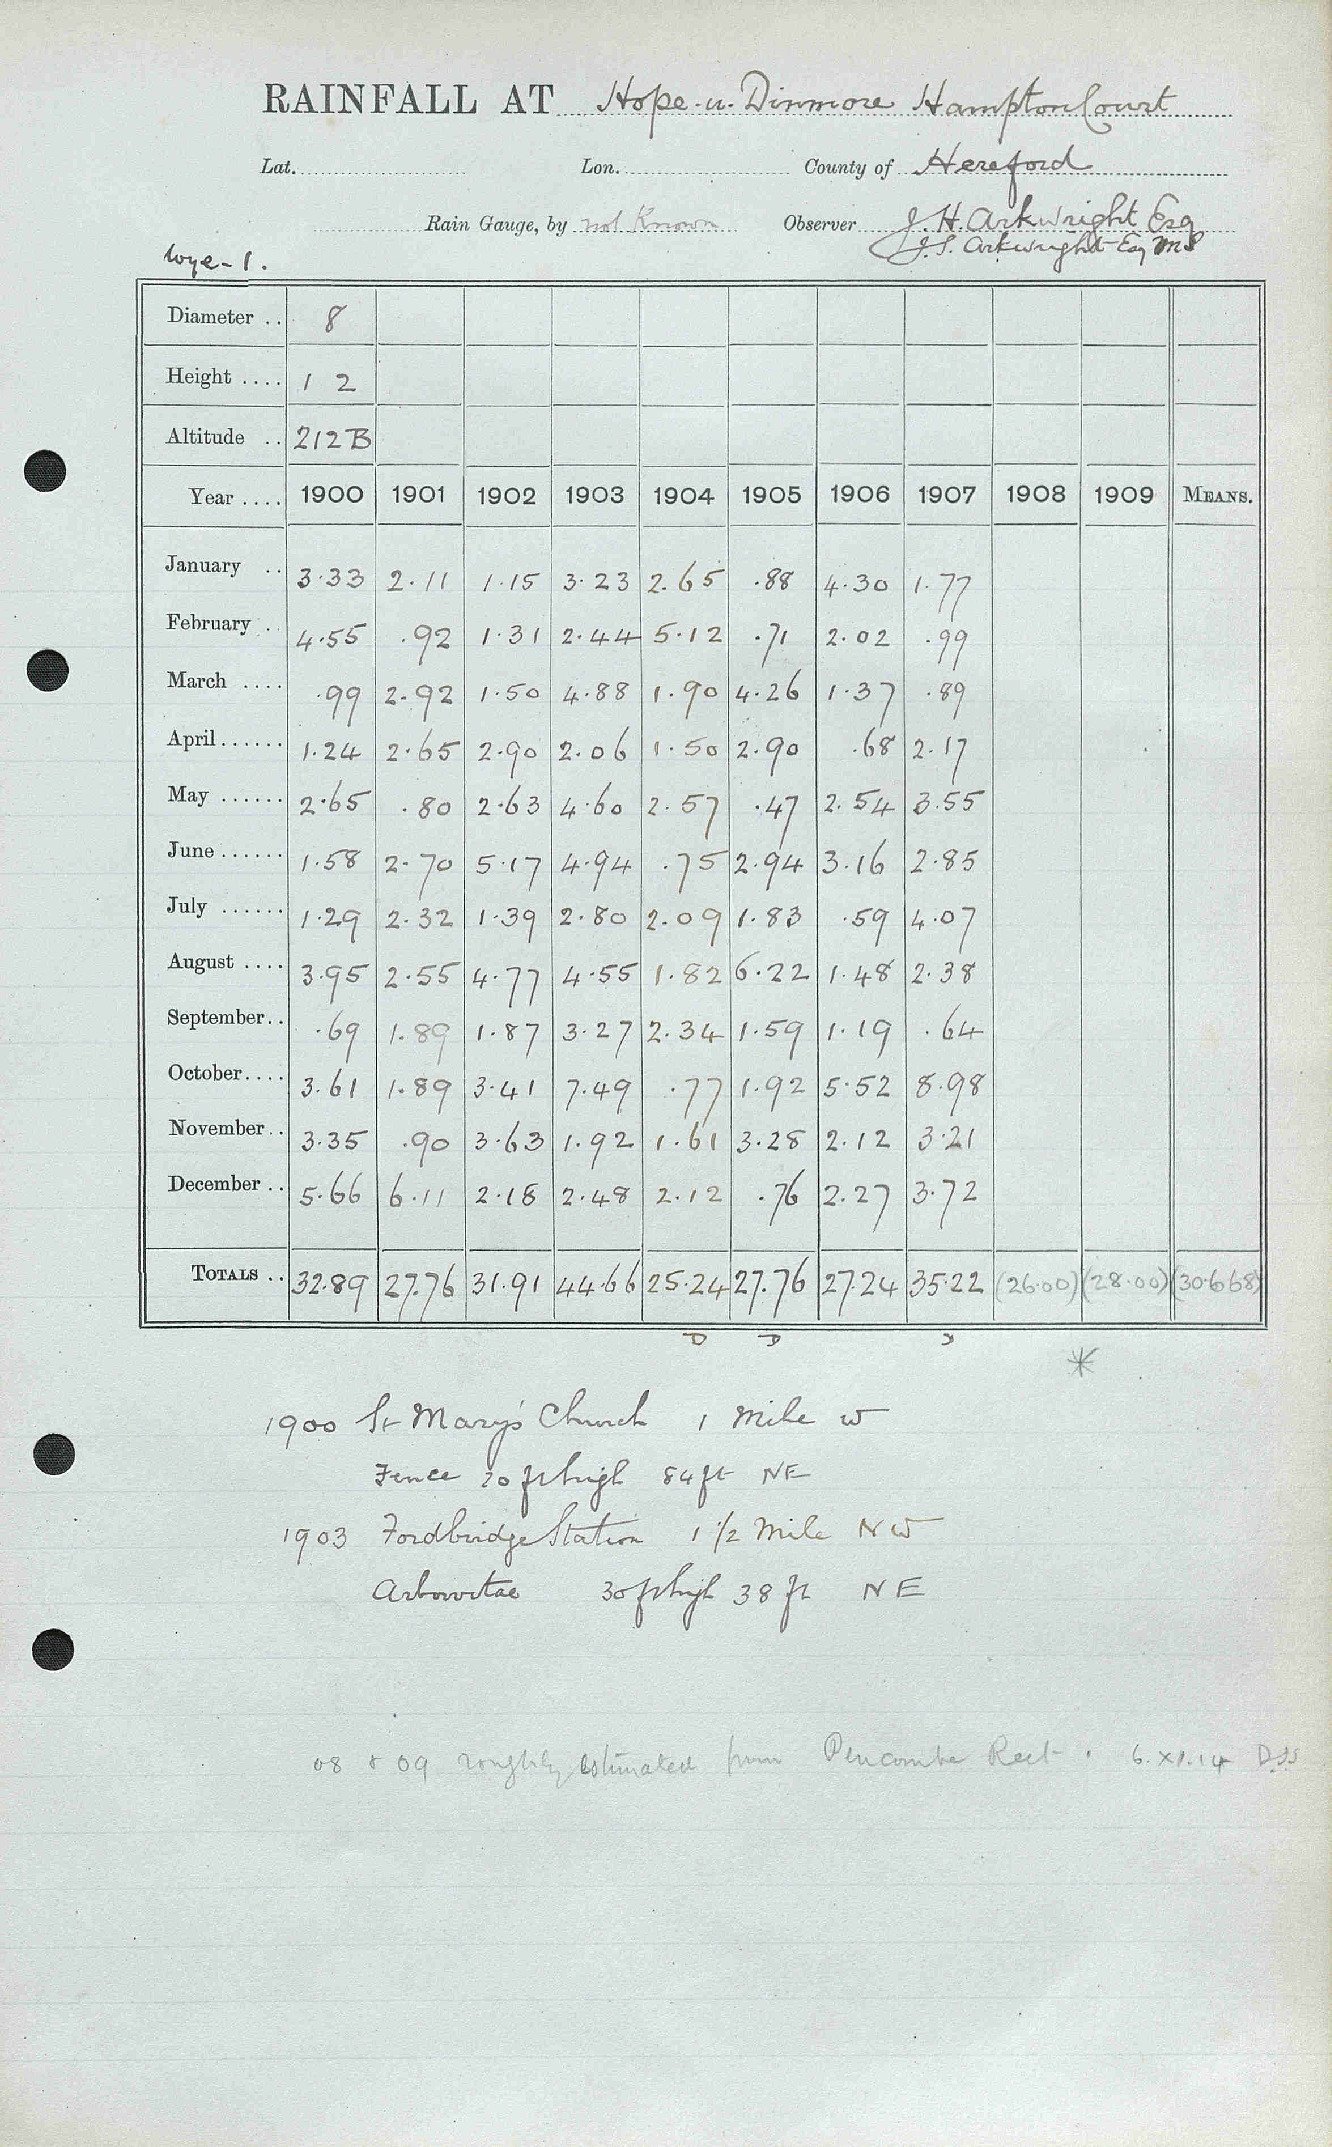 RAINFALL AT Hope-u-Dinmore Hampton Court
Lat. Lon. County of Hereford
Rain Gauge, by not Known Observer J. H. Arkwright Esq
J. S. Arkwright Esq MP
Wye-1.
Diameter .. 8
Height .... 1 2
Altitude .. 212 B
Year .... 1900 1901 1902 1903 1904 1905 1906 1907 1908 1909 MEANS.
January .. 3.33 2.11 1.15 3.23 2.65 .88 4.30 1.77
February .. 4.55 .92 1.31 2.44 5.12 .71 2.02 .99
March .... .99 2.92 1.50 4.88 1.90 4.26 1.37 .89
April...... 1.24 2.65 2.90 2.06 1.50 2.90 .68 2.17
May ...... 2.65 .80 2.63 4.60 2.57 .47 2.54 3.55
June...... 1.58 2.70 5.17 4.94 .75 2.94 3.16 2.85
July ...... 1.29 2.32 1.39 2.80 2.09 1.83 .59 4.07
August .... 3.95 2.55 4.77 4.55 1.82 6.22 1.48 2.38
September.. .69 1.89 1.87 3.27 2.34 1.59 1.19 .64
October.... 3.61 1.89 3.41 7.49 .77 1.92 5.52 8.98
November.. 3.35 .90 3.63 1.92 1.61 3.28 2.12 3.21
December .. 5.66 6.11 2.18 2.48 2.12 .76 2.27 3.72
TOTALS .. 32.89 27.76 31.91 44.66 25.24 27.76 27.24 35.22 (26.00) (28.00) (30.668)
D D D
*
1900 St Mary's Church 1 Mile W
Fence 20 ft high 84 ft NE
1903 Fordbridge Station 1 1/2 Mile NW
Arborvitae 30 ft high 38 ft NE
08 & 09 roughly estimated from Pencombe Rect. 6.XI.14 DSS